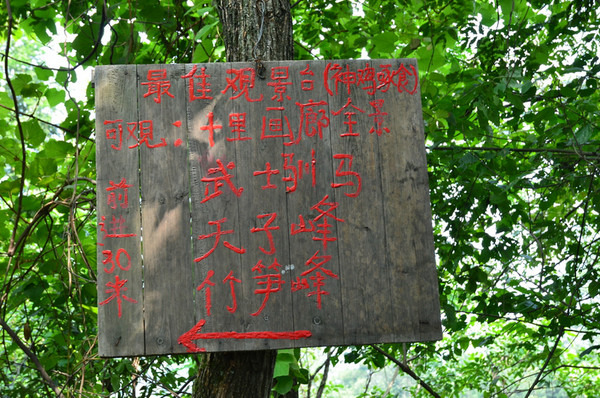 最佳观景台(神鸡啄食)
可观：十里画廊全景
武士驯马
天子峰
竹笋峰
前进30米